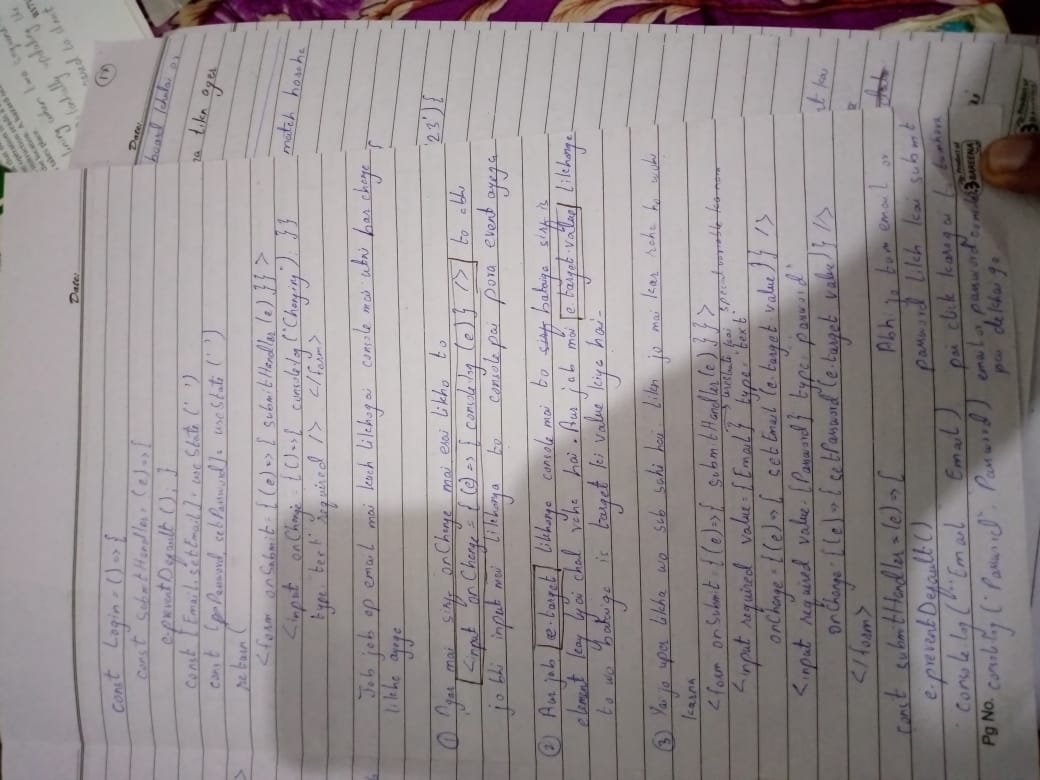 Date:
const Login = () => {
const submitHandler = (e) => {
e.preventDefault(); }
const [Email, setEmail] = useState (' ')
const [Password, setPassword] = useState (' ')
return (
<form onSubmit = {(e) => { submitHandler (e) }} >
<input onChange = { () => { console.log ("Changing") }}
type = "text" required /> </form>
Job job ap email mai kuch likhogai console mai utni bar change
likha ayega
① Agar mai sirf onChange mai esai likho to
<input onChange = { (e) => { console.log (e) } } /> to abhi
jo bhi input mai likhonga to console pai pora event ayega
② Aur jab e.target likhonga console mai to batiaga sirf is
element kay liyai chal raha hai. Aur jab mai e.target.value likhonga
to wo bataiga is target ki value kiya hai-
③ Yai jo upar likha wo sub sahi hai likn jo mai kar raha ho wohi
karna
<form onSubmit = { (e) => { submitHandler (e) } } >
<input required value = {Email} type = "text"
onChange = { (e) => { setEmail (e.target.value) } } />
<input required value = {Password} type = "password"
onChange = { (e) => { setPassword (e.target.value) } } />
</form>
Abhi jo tum email or
const submitHandler = (e) => {
password likh kai submit
e.preventDefault()
pai clik karega to tumhara
console.log ("Email" Email)
email, password console
console.log ("Password", Password)
pai dekhaiga
Pg No.
A Product of
SAREENA
Date:
17
match horaha
23') {